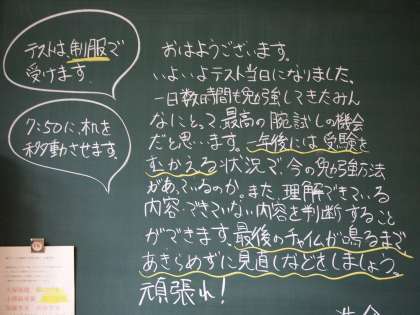 テストは制服で
受けます。
7:50に、机を
移動させます。
おはようございます。
いよいよテスト当日になりました。
一日数時間も勉強してきたみん
なにとって、最高の腕試しの機会
だと思います。一年後には受験を
むかえる状況で、今の勉強方法
があっているのか。また、理解できている
内容・できていない内容を判断すること
ができます。最後のチャイムが鳴るまで
あきらめずに見直しなどをしましょう。
頑張れ！